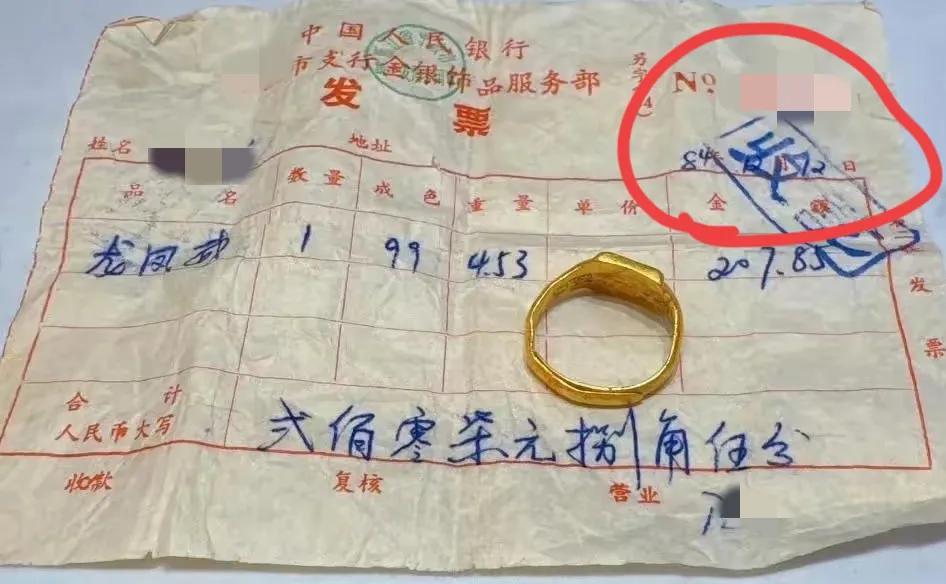 中国人民银行
市支行金银饰品服务部
发票
No
姓名 地址
84年12月12日
品名 数量 成色 重量 单价 金额
龙凤戒 1 99 4.53 207.85
合计
人民币大写 弍佰零柒元捌角伍分
发票
收款 复核 营业